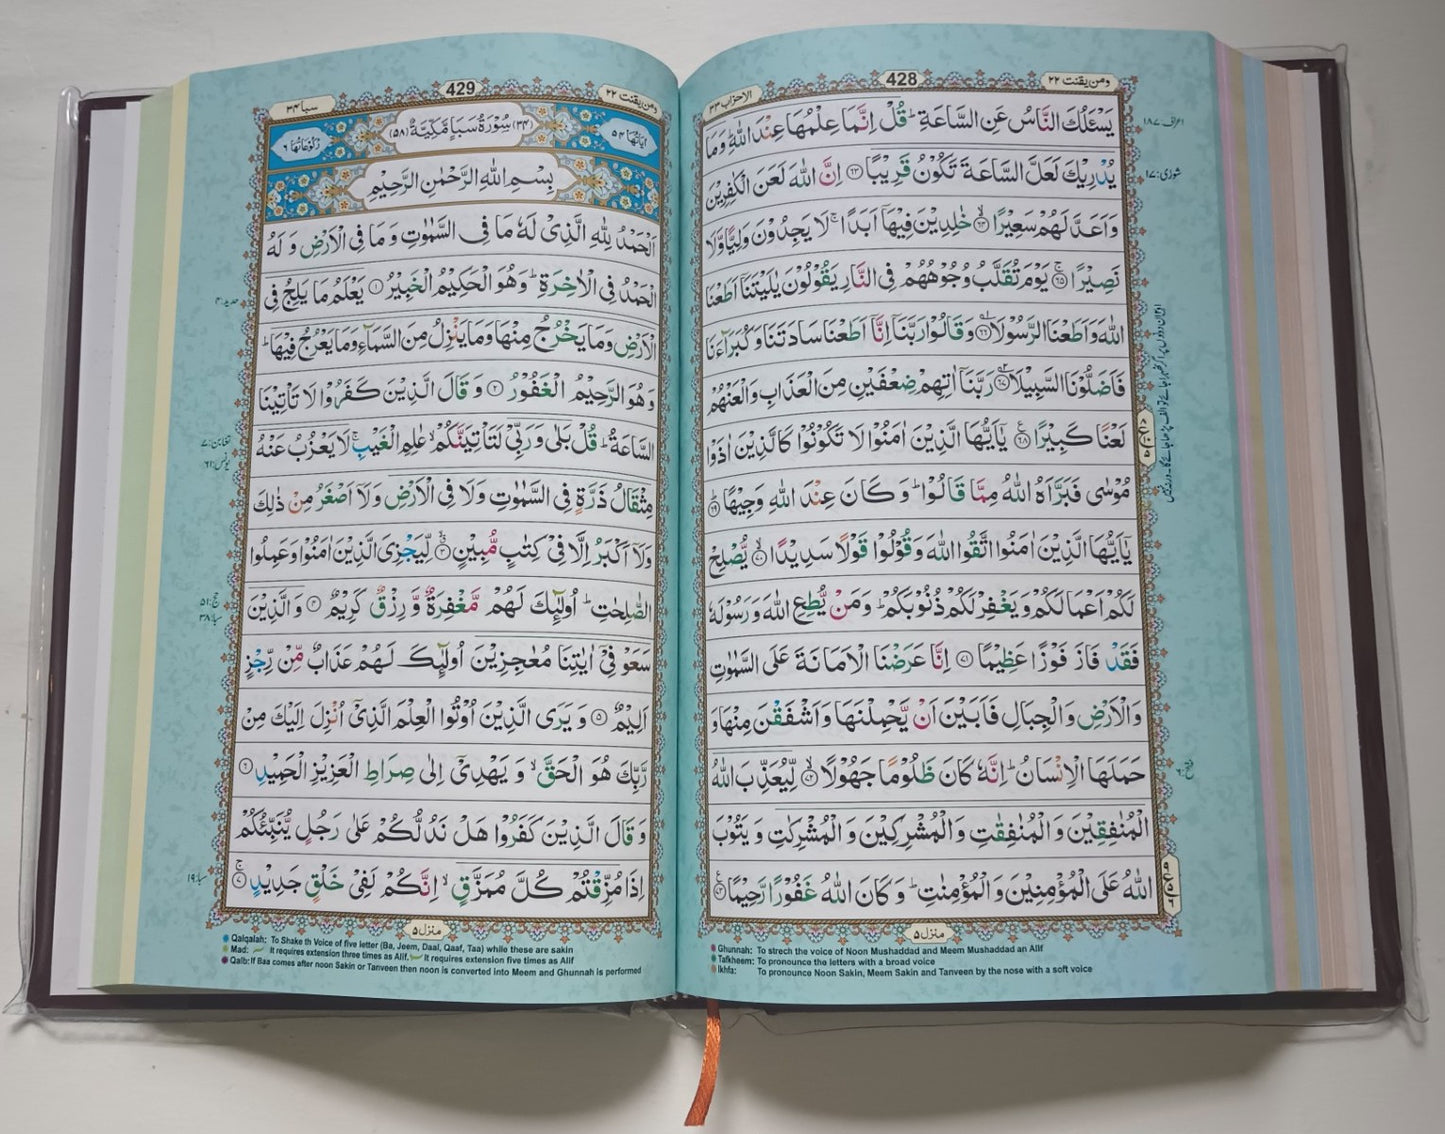 الاحزاب ٣٣
428
ومن یقنت ٢٢
یَسْـَٔلُكَ النَّاسُ عَنِ السَّاعَةِ ؕ قُلْ اِنَّمَا عِلْمُهَا عِنْدَ اللّٰهِ ؕ وَمَا
یُدْرِیْكَ لَعَلَّ السَّاعَةَ تَكُوْنُ قَرِیْبًا ﴿۶۳﴾ اِنَّ اللّٰهَ لَعَنَ الْكٰفِرِیْنَ
وَاَعَدَّ لَهُمْ سَعِیْرًا ﴿۶۴﴾ خٰلِدِیْنَ فِیْهَاۤ اَبَدًا ۚ لَا یَجِدُوْنَ وَلِیًّا وَّلَا
نَصِیْرًا ﴿۶۵﴾ یَوْمَ تُقَلَّبُ وُجُوْهُهُمْ فِی النَّارِ یَقُوْلُوْنَ یٰلَیْتَنَاۤ اَطَعْنَا
اللّٰهَ وَاَطَعْنَا الرَّسُوْلَا ﴿۶۶﴾ وَقَالُوْا رَبَّنَاۤ اِنَّاۤ اَطَعْنَا سَادَتَنَا وَكُبَرَآءَنَا
فَاَضَلُّوْنَا السَّبِیْلَا ﴿۶۷﴾ رَبَّنَاۤ اٰتِهِمْ ضِعْفَیْنِ مِنَ الْعَذَابِ وَالْعَنْهُمْ
لَعْنًا كَبِیْرًا ﴿۶۸﴾ یٰۤاَیُّهَا الَّذِیْنَ اٰمَنُوْا لَا تَكُوْنُوْا كَالَّذِیْنَ اٰذَوْا
مُوْسٰی فَبَرَّاَهُ اللّٰهُ مِمَّا قَالُوْا ؕ وَكَانَ عِنْدَ اللّٰهِ وَجِیْهًا ﴿۶۹﴾
یٰۤاَیُّهَا الَّذِیْنَ اٰمَنُوا اتَّقُوا اللّٰهَ وَقُوْلُوْا قَوْلًا سَدِیْدًا ﴿۷۰﴾ یُّصْلِحْ
لَكُمْ اَعْمَالَكُمْ وَیَغْفِرْ لَكُمْ ذُنُوْبَكُمْ ؕ وَمَنْ یُّطِعِ اللّٰهَ وَرَسُوْلَهٗ
فَقَدْ فَازَ فَوْزًا عَظِیْمًا ﴿۷۱﴾ اِنَّا عَرَضْنَا الْاَمَانَةَ عَلَی السَّمٰوٰتِ
وَالْاَرْضِ وَالْجِبَالِ فَاَبَیْنَ اَنْ یَّحْمِلْنَهَا وَاَشْفَقْنَ مِنْهَا وَ
حَمَلَهَا الْاِنْسَانُ ؕ اِنَّهٗ كَانَ ظَلُوْمًا جَهُوْلًا ﴿۷۲﴾ لِّیُعَذِّبَ اللّٰهُ
الْمُنٰفِقِیْنَ وَالْمُنٰفِقٰتِ وَالْمُشْرِكِیْنَ وَالْمُشْرِكٰتِ وَیَتُوْبَ
اللّٰهُ عَلَی الْمُؤْمِنِیْنَ وَالْمُؤْمِنٰتِ ؕ وَكَانَ اللّٰهُ غَفُوْرًا رَّحِیْمًا ﴿۷۳﴾
منزل ۵
اعراف: ١٨٧
شوریٰ: ١٧
Ghunnah: To strech the voice of Noon Mushaddad and Meem Mushaddad an Alif
Tafkheem: To pronounce the letters with a broad voice
Ikhfa: To pronounce Noon Sakin, Meem Sakin and Tanveen by the nose with a soft voice
ومن یقنت ٢٢
429
سبا ٣٤
اٰیاتها ٥٤
(٣٤) سُوْرَةُ سَبَاٍ مَّكِّیَّةٌ (٥٨)
رکوعاتها ٦
بِسْمِ اللّٰهِ الرَّحْمٰنِ الرَّحِیْمِ
اَلْحَمْدُ لِلّٰهِ الَّذِیْ لَهٗ مَا فِی السَّمٰوٰتِ وَمَا فِی الْاَرْضِ وَلَهُ
الْحَمْدُ فِی الْاٰخِرَةِ ؕ وَهُوَ الْحَكِیْمُ الْخَبِیْرُ ﴿۱﴾ یَعْلَمُ مَا یَلِجُ فِی
الْاَرْضِ وَمَا یَخْرُجُ مِنْهَا وَمَا یَنْزِلُ مِنَ السَّمَآءِ وَمَا یَعْرُجُ فِیْهَا ؕ
وَهُوَ الرَّحِیْمُ الْغَفُوْرُ ﴿۲﴾ وَقَالَ الَّذِیْنَ كَفَرُوْا لَا تَاْتِیْنَا
السَّاعَةُ ؕ قُلْ بَلٰی وَرَبِّیْ لَتَاْتِیَنَّكُمْ ۙ عٰلِمِ الْغَیْبِ ۚ لَا یَعْزُبُ عَنْهُ
مِثْقَالُ ذَرَّةٍ فِی السَّمٰوٰتِ وَلَا فِی الْاَرْضِ وَلَاۤ اَصْغَرُ مِنْ ذٰلِكَ
وَلَاۤ اَكْبَرُ اِلَّا فِیْ كِتٰبٍ مُّبِیْنٍ ﴿۳﴾ لِّیَجْزِیَ الَّذِیْنَ اٰمَنُوْا وَعَمِلُوا
الصّٰلِحٰتِ ؕ اُولٰٓئِكَ لَهُمْ مَّغْفِرَةٌ وَّرِزْقٌ كَرِیْمٌ ﴿۴﴾ وَالَّذِیْنَ
سَعَوْ فِیْۤ اٰیٰتِنَا مُعٰجِزِیْنَ اُولٰٓئِكَ لَهُمْ عَذَابٌ مِّنْ رِّجْزٍ
اَلِیْمٌ ﴿۵﴾ وَیَرَی الَّذِیْنَ اُوْتُوا الْعِلْمَ الَّذِیْۤ اُنْزِلَ اِلَیْكَ مِنْ
رَّبِّكَ هُوَ الْحَقَّ ۙ وَیَهْدِیْۤ اِلٰی صِرَاطِ الْعَزِیْزِ الْحَمِیْدِ ﴿۶﴾
وَقَالَ الَّذِیْنَ كَفَرُوْا هَلْ نَدُلُّكُمْ عَلٰی رَجُلٍ یُّنَبِّئُكُمْ
اِذَا مُزِّقْتُمْ كُلَّ مُمَزَّقٍ ۙ اِنَّكُمْ لَفِیْ خَلْقٍ جَدِیْدٍ ﴿۷﴾
منزل ۵
حدید: ٤
تغابن: ٧
یونس: ٦١
حج: ٥١
سبا: ٣٨
سبا: ١٩
Qalqalah; To Shake th Voice of five letter (Ba, Jeem, Daal, Qaaf, Taa) while these are sakin
Mad: It requires extension three times as Alif. It requires extension five times as Alif
Qalb: If Baa comes after noon Sakin or Tanveen then noon is converted into Meem and Ghunnah is performed